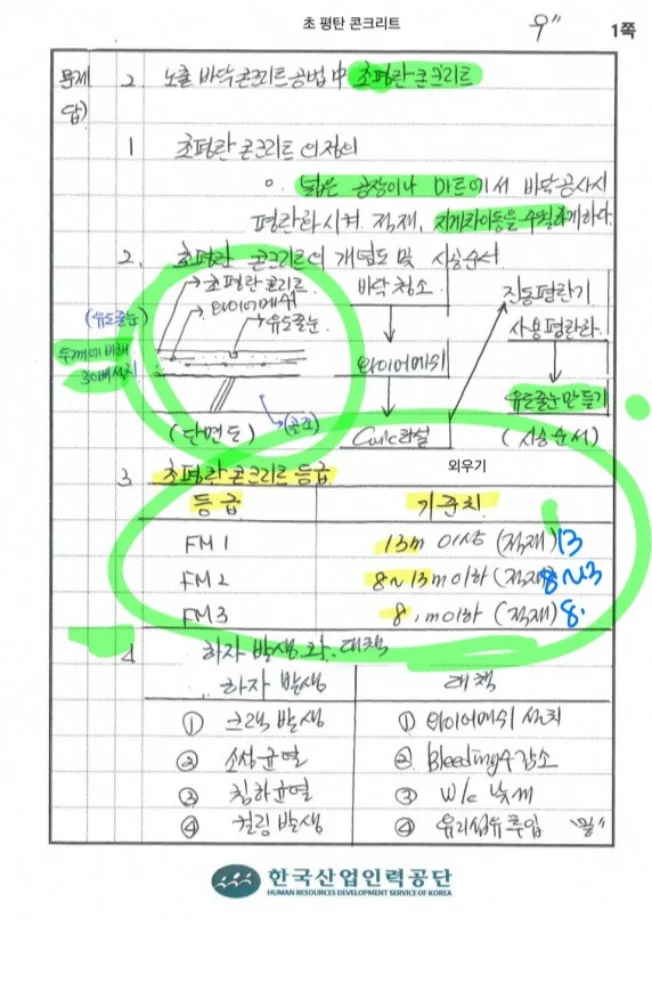 초 평탄 콘크리트
1쪽
문제 2. 노출 바닥콘크리트공법中 초평탄콘크리트
답)
1 초평탄 콘크리트의 정의
넓은 공장이나 마트에서 바닥공사시
평탄화시켜 적재, 지게차이동을 수월하게하다.
2. 초평탄 콘크리트의 개념도 및 시공순서
초평탄콘크리트
와이어메쉬
유도줄눈
(유도줄눈)
두께에 비해
30배설치
(단면도)
(골조)
바닥청소
와이어메쉬
Conc타설
진동평탄기
사용평탄화
유도줄눈만들기
(시공순서)
3 초평탄콘크리트 등급
외우기
등급 기준치
FM1 13m 이상 (적재) 13
FM2 8~13m이하 (적재) 8~13
FM3 8m이하 (적재) 8.
4 하자 발생 및 대책
하자 발생 대책
① 크랙 발생 ① 와이어메쉬 설치
② 소성균열 ② Bleeding수감소
③ 침하균열 ③ W/c 낮게
④ 컬링발생 ④ 유리섬유투입 "끝"
한국산업인력공단
HUMAN RESOURCES DEVELOPMENT SERVICE OF KOREA